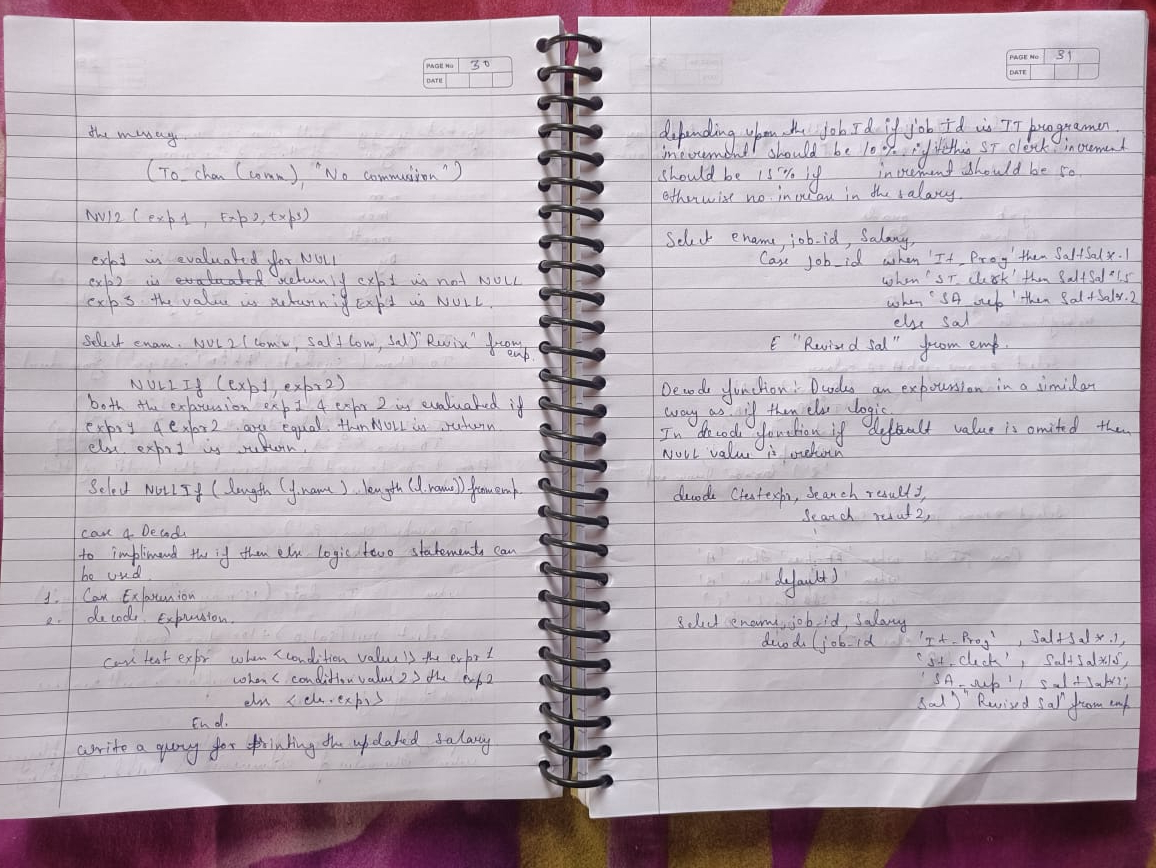 PAGE No 30
DATE
the messag
(To_char (comm), "No commission")
NVl2 (exp1, Exp2, Exp3)
exp1 is evaluated for NULL
exp2 is evaluated return if exp1 is not NULL
exp3 the value is return if Exp1 is NULL.
Select enam. NVL2 (comm, Sal+Com, Sal) "Revix" from
emp.
NULLIf (exp1, expr2)
both the expression exp1 & expr2 is evaluated if
expr1 & expr2 are equal than NULL is return
else expr1 is return.
Select NULLIf (length (f.name) . length (l.name)) from emp
case & Decode
to implimend the if then else logic two statements can
be used
1. Case Expression
2. decode Expression.
Case test expr when <condition value1> the expr1
when <condition value2> the exp2
else <else.expr>
End.
write a query for printing the updated salary
PAGE No 31
DATE
depending upon the job Id if job Id is IT programer
increment should be 10% if this ST clerk increment
should be 15% if increment should be 50.
otherwise no increan in the salary.
Select ename, job-id, Salary,
Case job_id when 'It_Prog' then Sal+Sal*.1
when 'ST clerk' then Sal+Sal*15
when 'SA rep' then Sal+Sal*.2
else sal
E "Revised sal" from emp.
Decode function: Decodes an expression in a similar
way as if then else logic.
In decode function if default value is omited then
NULL value is return
decode (testexpr, Search result1,
Search result2,
default)
Select ename, job-id, Salary
decode (job-id 'It_Prog', Sal+Sal*.1,
'St_clerk', Sal+Sal*15,
'SA_rep', Sal+Sal*2,
Sal) "Revised Sal" from emp